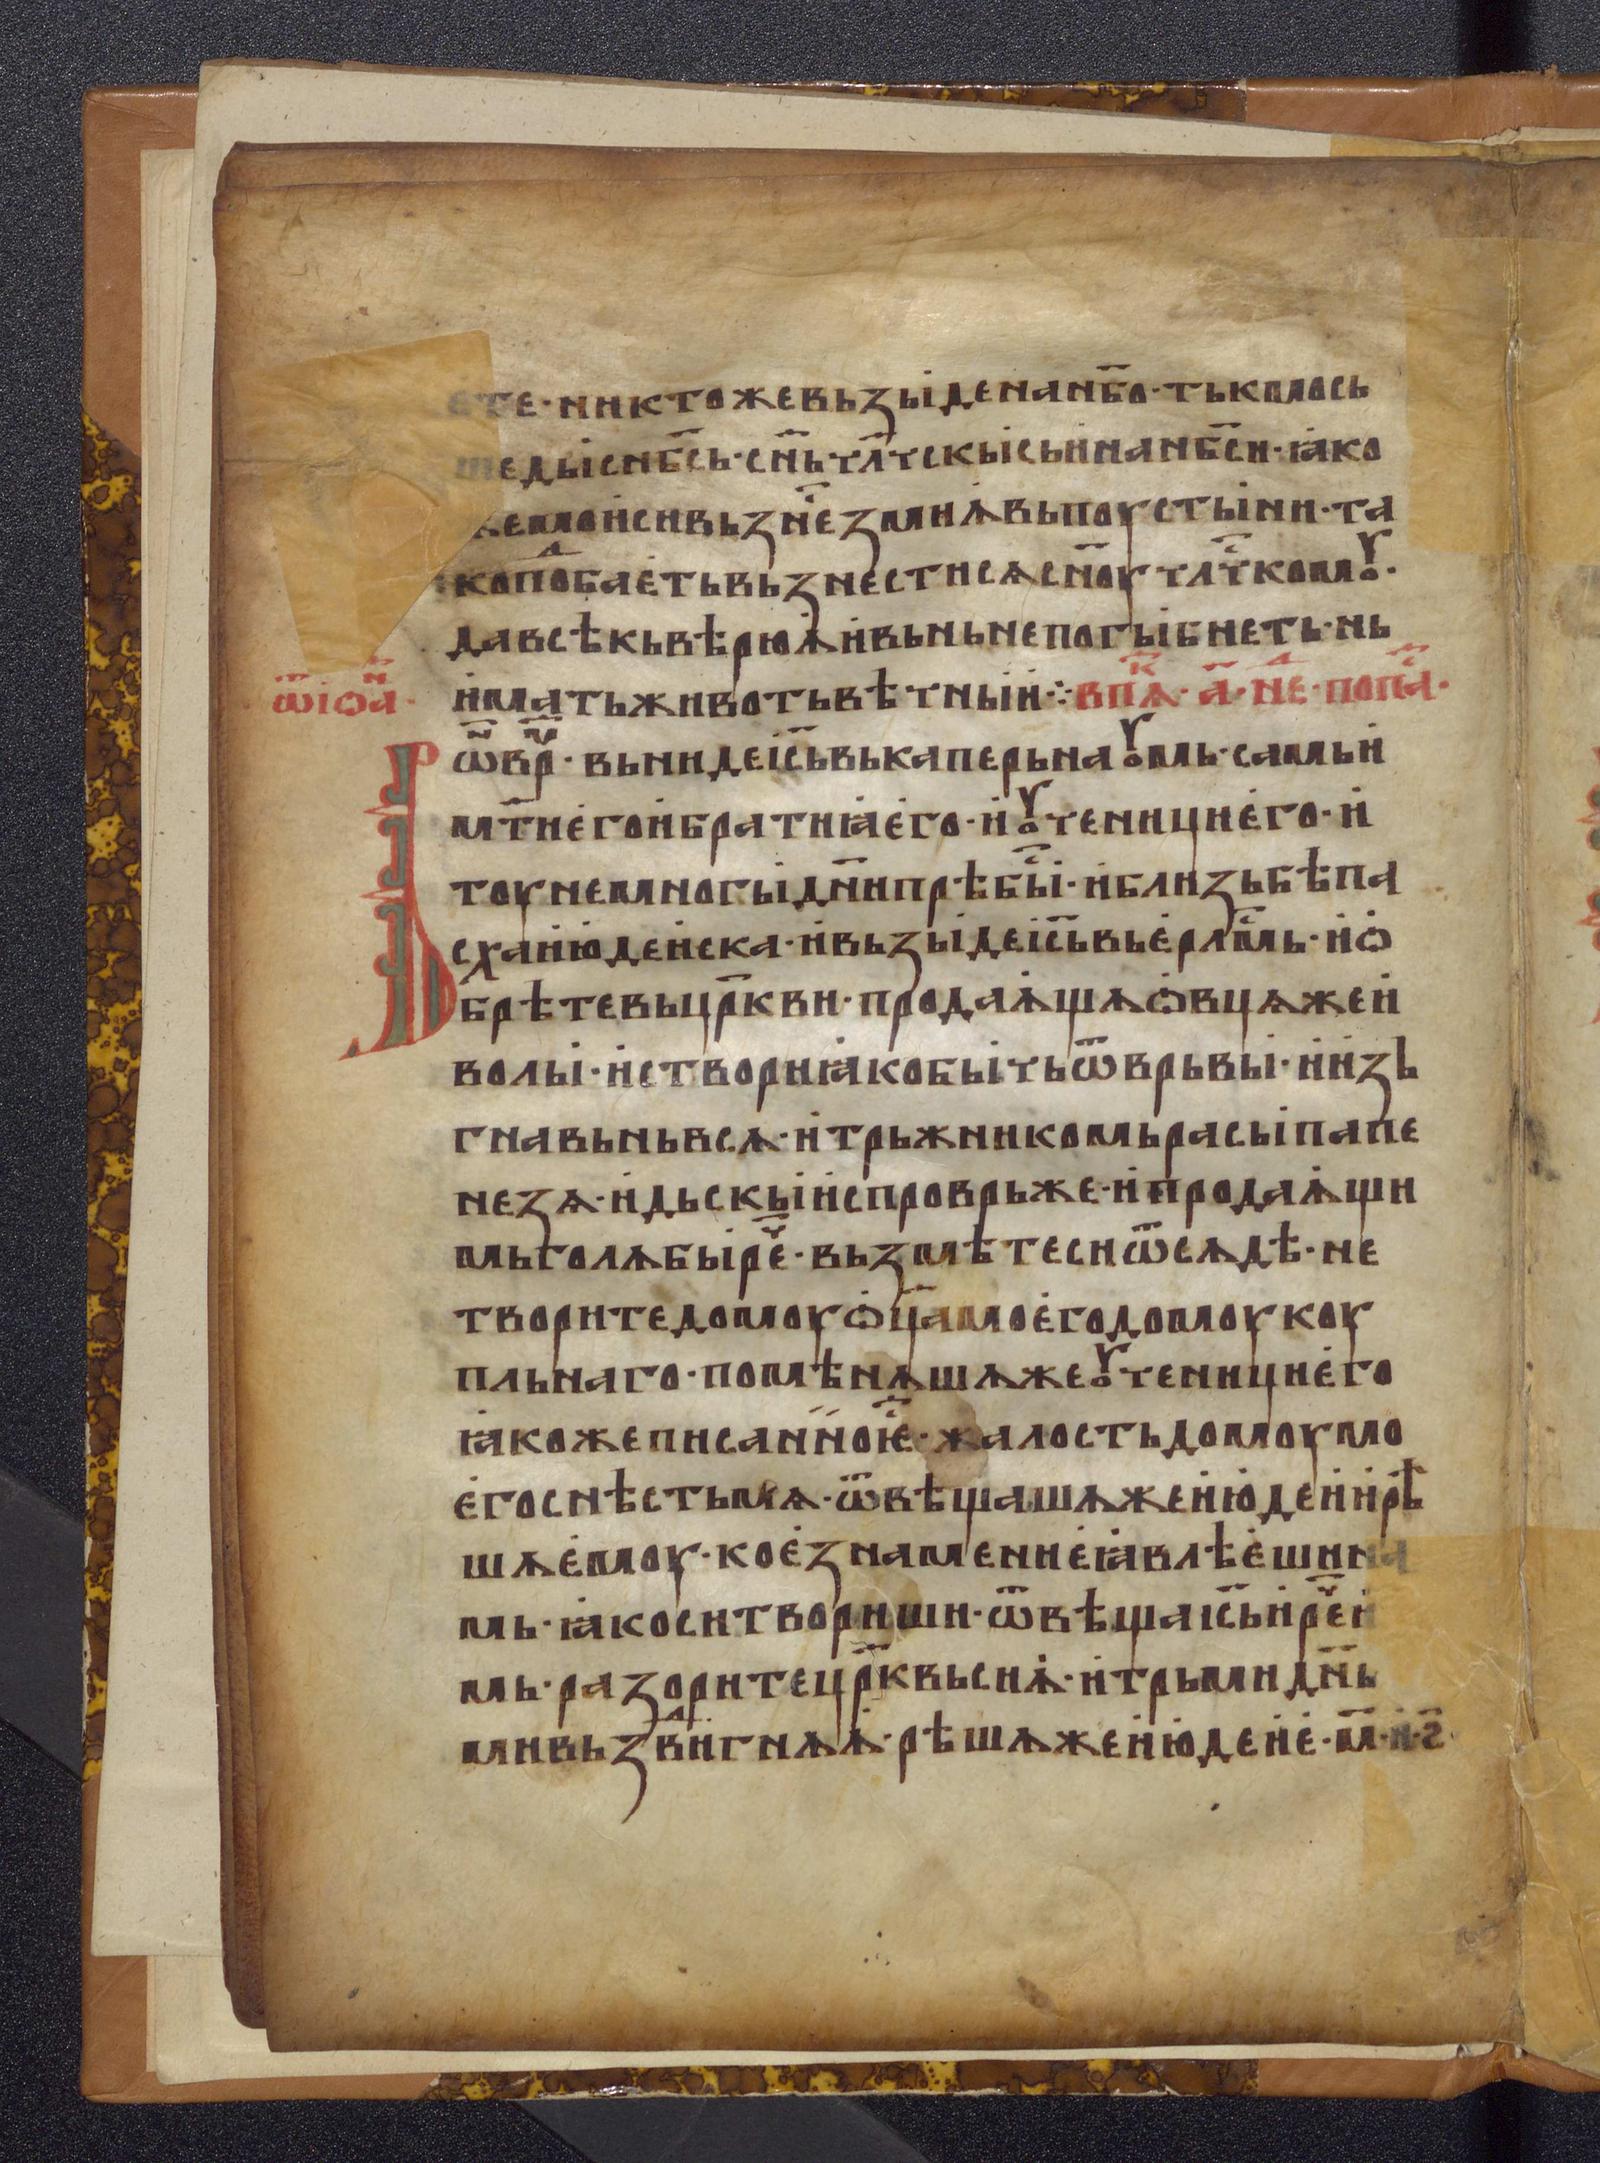 ете · никтожевьзꙑіденанб҃о · тькмосъ
шедꙑиснб҃сь · сн҃ьчлч҃скꙑисꙑнанб҃си · ꙗко
жемѡисивьзн҃езмиѫвьпоустꙑни · та
коподⷣбаетьвьзнестисѧсн҃оучлч҃комꙋ ·
давсѣкьвѣрюѫивьньнепогꙑбнеть · нь
иматьживотьвѣчнꙑи ⁘ впⷦѧ · а҃ · неⷣ · попаⷭ ·
ѿіѡаⷩ ·
Ѿврⷨ · вьнидеіс҃ьвькаперьнаꙋмь · самьи
мт҃иегоибратиꙗего · иꙋченициего · и
тоунемногꙑдн҃ипрѣбꙑⷭ · иблизьбѣпа
схаиюдеиска · ивьзꙑдеіс҃ьвьерⷭлмь · иѻ
брѣтевьцр҃кви · продаѫщѧѻвцѧжеи
волꙑ · иствориꙗкобичьѿврьвꙑ · иизь
гнавьньвсѧ · итрьжникомьрасꙑпапе
незѧ · идьскꙑиспроврьже · ипродаѫщи
мьголѫбꙑреⷱ · вьзмѣтесиѿсѫдѣ · не
творитедомоуѻц҃амоегодомоукоу
пльнаго · помѣнѫшѧжеꙋченициего
ꙗкожеписанноѥⷭ · жалостьдомоумо
егоснѣстьмѧ · ѿвѣщашѧжеиюдеиирѣ
шѧемоу · коезнамениеꙗвлѣешина
мь · ꙗкоситвориши · ѿвѣщаіс҃ьиреⷱи
мь · разоритецр҃квьсиѫ · итрьмидн҃ь
мивьзвⷣигнѫѫ · рѣшѧжеиюдеие · м҃ · и · ѕ҃ ·